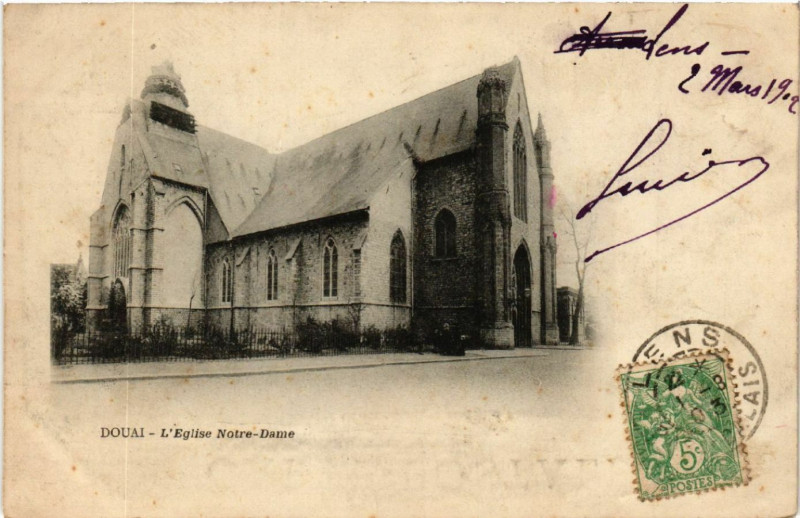 Lens -
2 Mars 1902
Lucien
DOUAI - L'Eglise Notre-Dame
LENS
5c
POSTES